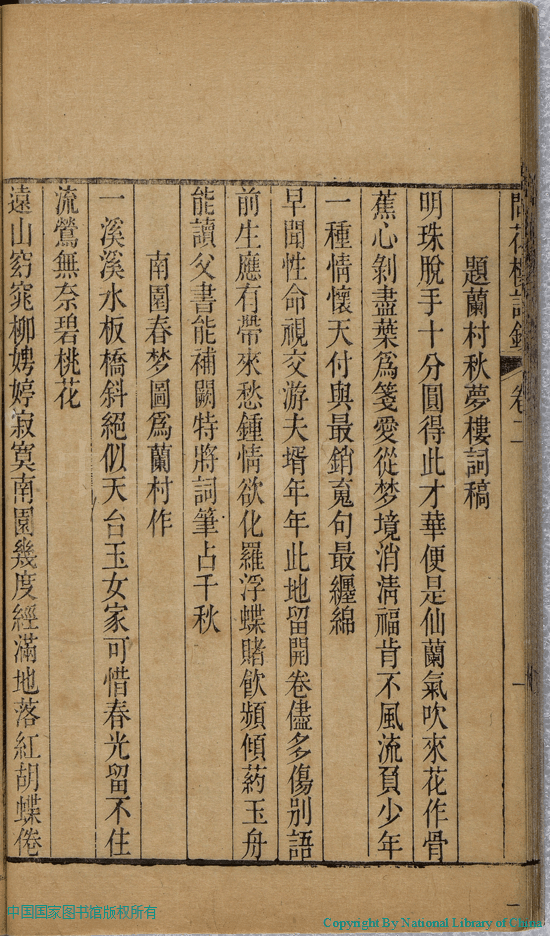 問花樓詩鈔 卷二
一
題蘭村秋夢樓詞稿
明珠脫手十分圓得此才華便是仙蘭氣吹來花作骨
蕉心剝盡葉爲箋愛從梦境消淸福肯不風流負少年
一種情懷天付與最銷䰟句最纏綿
早聞性命視交游夫壻年年此地留開卷儘多傷別語
前生應有帶來愁鍾情欲化羅浮蝶賭飮頻傾葯玉舟
能讀父書能補闕特將詞筆占千秋
南園春梦圖爲蘭村作
一溪溪水板橋斜絕似天台玉女家可惜春光留不住
流鶯無奈碧桃花
遠山窈窕柳娉婷寂寞南園幾度經滿地落紅胡蝶倦
中国国家图书馆版权所有
Copyright By National Library of China